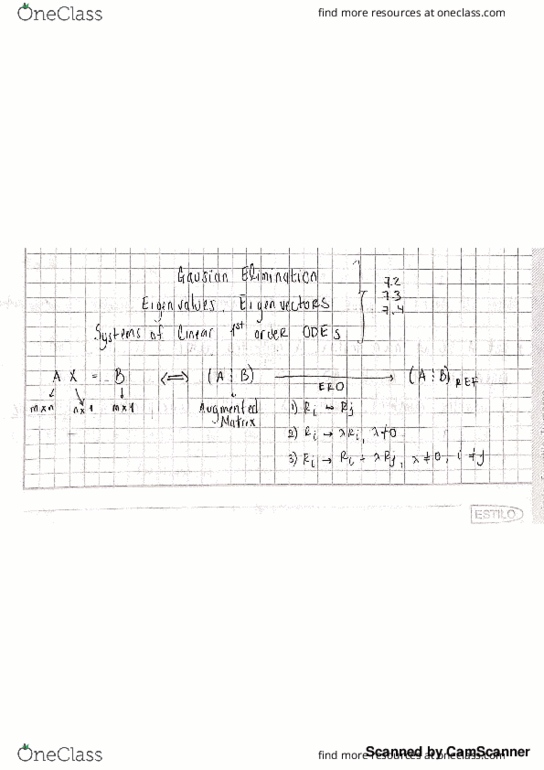 OneClass
find more resources at oneclass.com
Gausian Elimination
Eigenvalues, Eigenvectors
Systems of Linear 1st order ODEs
7.2
7.3
7.4
A X = B ⟺ (A ⋮ B) → (A ⋮ B) REF
ERO
m×n n×1 m×1
Augmented Matrix
1) Ri ↔ Rj
2) Ri → λRi, λ≠0
3) Ri → Ri + λRj, λ≠0, i≠j
ESTILO
OneClass
find more resources at oneclass.com
Scanned by CamScanner